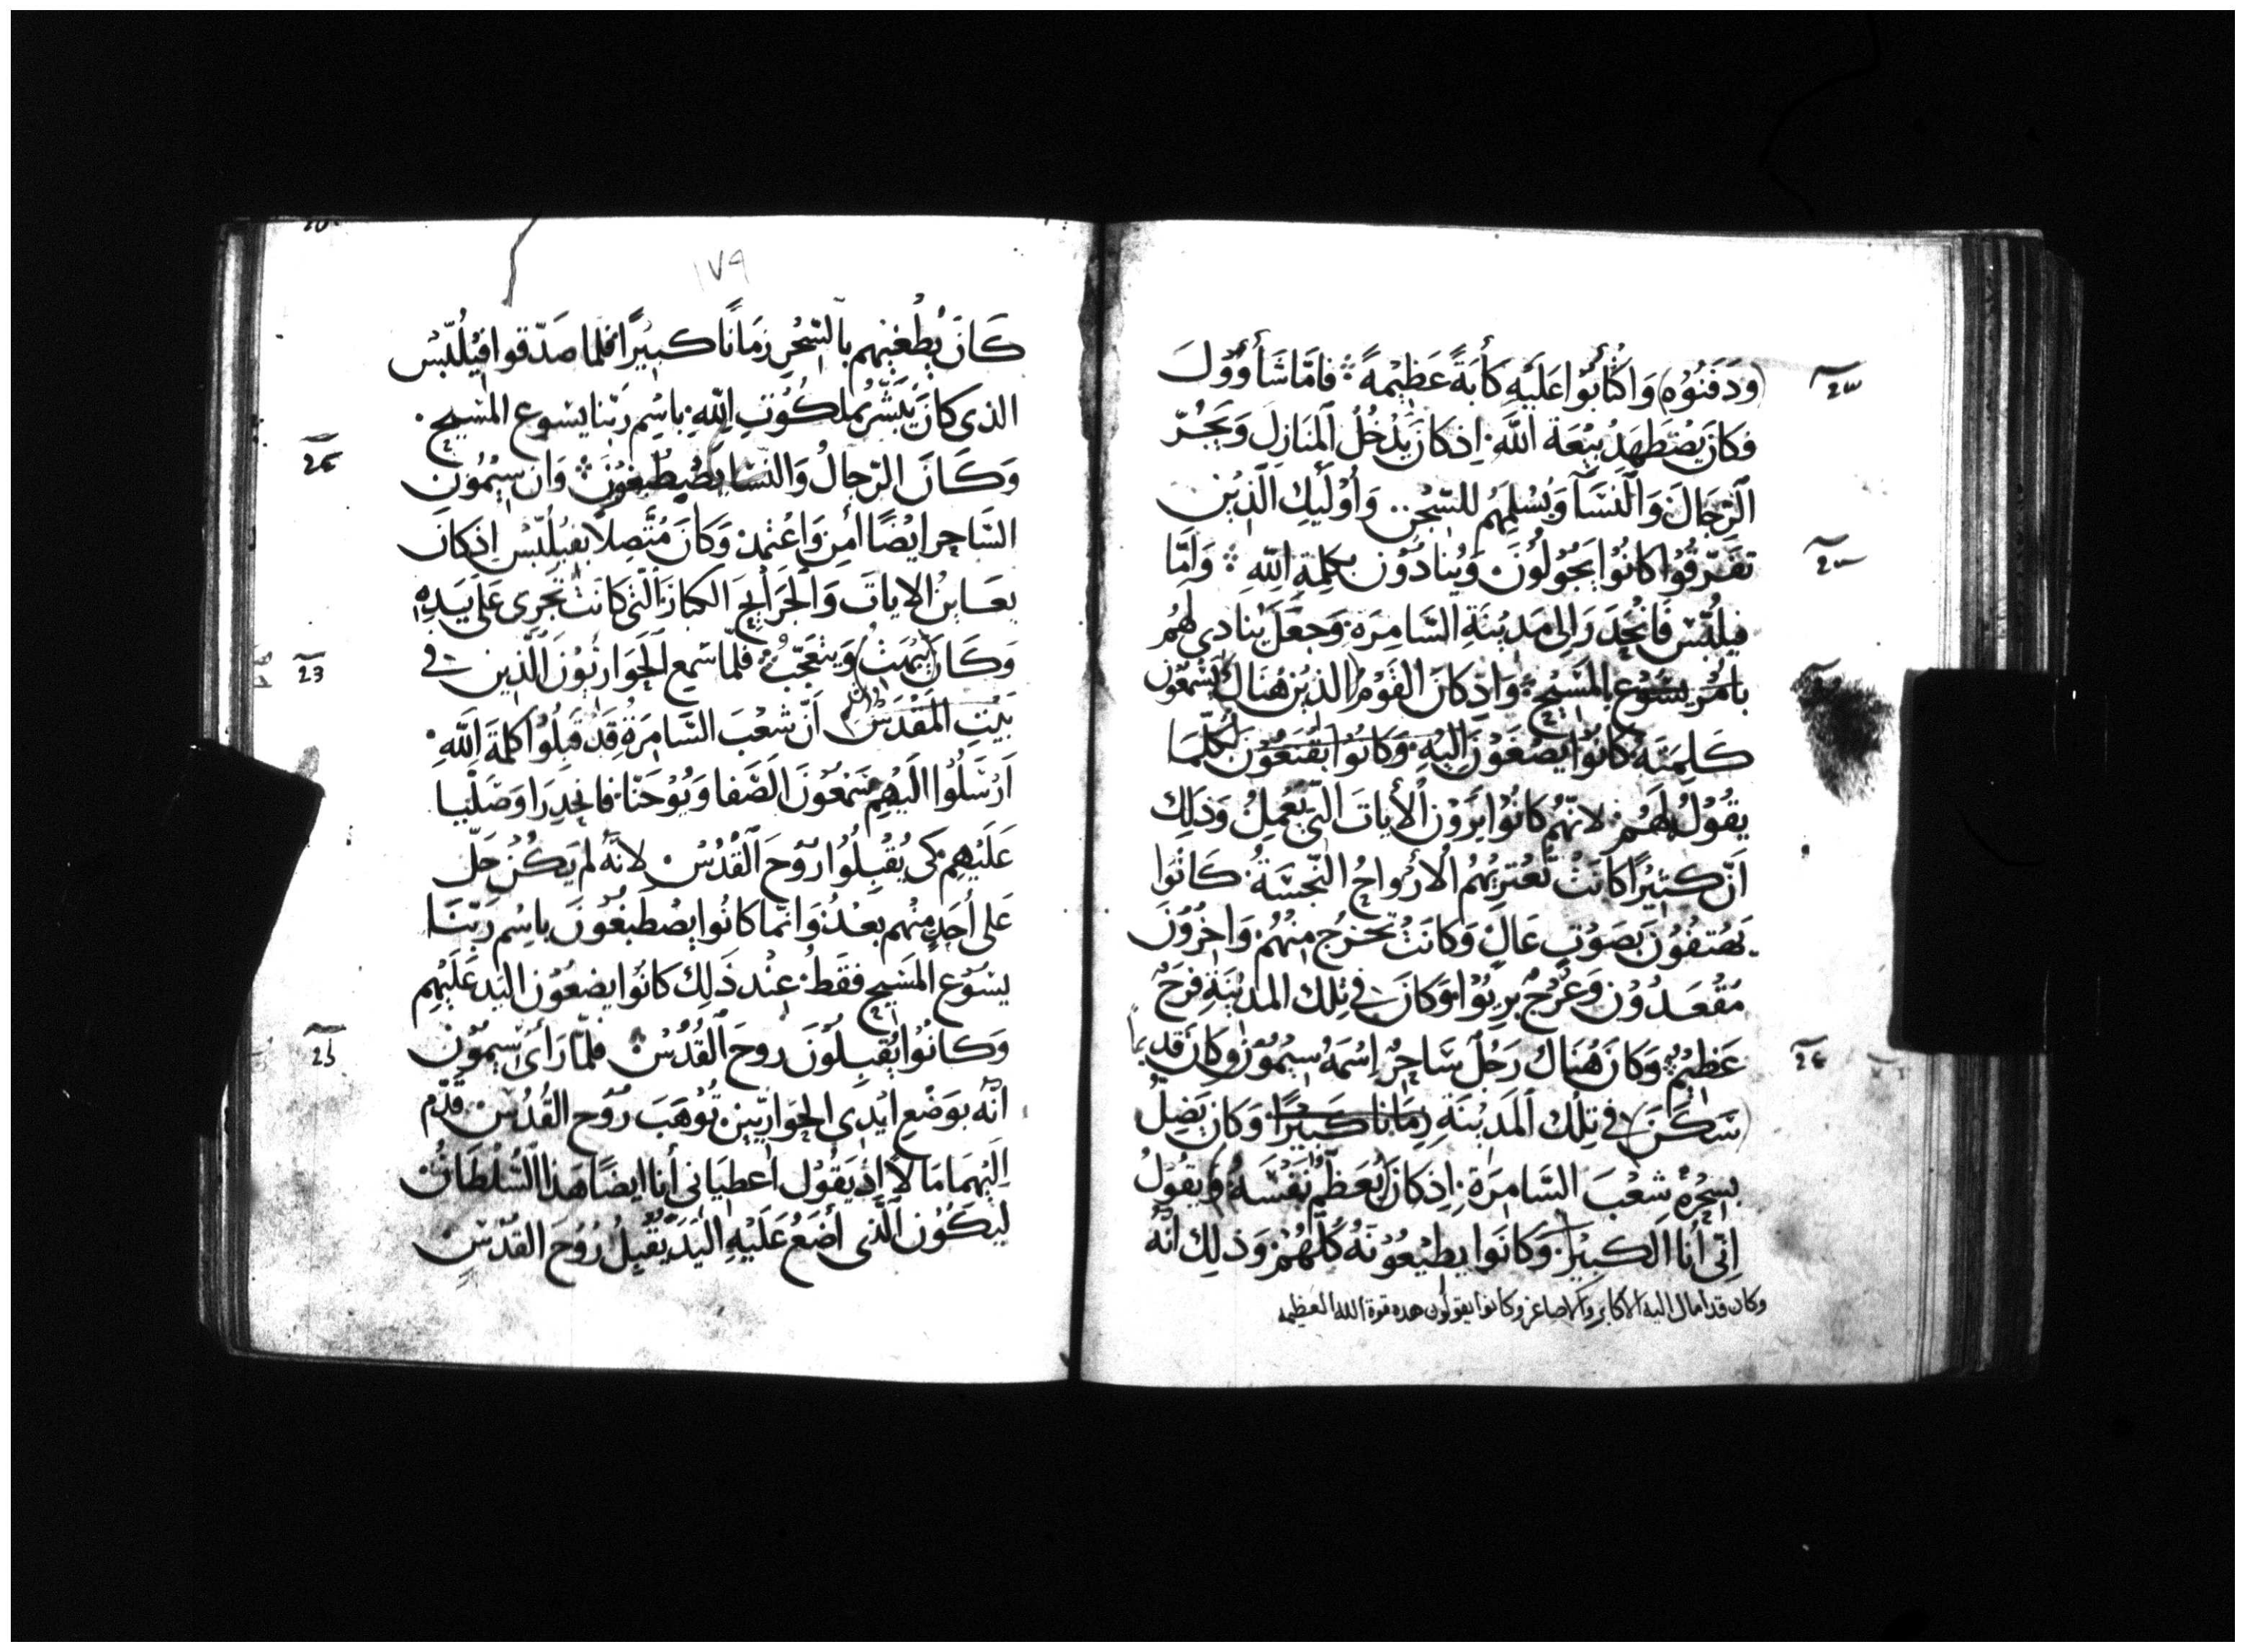 (ودَفَنُوْه) وَاكْتَأَبُوا عَلَيْهِ كَأْبَةً عَظِيْمَةً فامَّا شَأوُوْلَ
فكانَ يَضْطَهِدُ بِيْعَةَ اللَّهِ اِذ كانَ يَدْخُلُ المَنَازِلَ وَيَجُرّ
الرِّجَالَ وَالنِّسَآ وَيُسْلِمَهُم للسِّجْنِ وَأُوْلَٰيِكَ الَّذِيْنَ
تفَرَّقُوْا كانُوْا يَجُوْلُوْنَ وَيُنَادُوْنَ بكلِمَةِ اللَّهِ وَامَّا
فيلُبّسْ فَانْحَدَرَ الى مَدِيْنَةِ السَّامِرَةِ وَجَعَلَ يُنادِى لَهُم
بامْرِ يسُوْع المَسِيْحِ وَاِذ كانَ القَوْمُ الذِيْنَ هُنَاكَ يَسْمَعُوْنَ
كَلِمَتَهُ كانُوْا يَصْغَوْنَ اليْهِ وَكانُوْا يَقْنَعُوْنَ بكلّمَا
يقُوْلُ لهُم لانّهُم كانُوْا يَرَوْن الأيَاتَ التّى يَعْمِلُ وَذلِكَ
اَنَّ كَثيْرًا كانَتْ تَعْتَرِيْهُم الأرْوَاحُ النّجسَةُ كَانُوْا
يَهْتِفُوْنَ بصَوْتٍ عَالٍ وَكانَتْ تخرُج مِنْهُم وَاخَرُوْنَ
مُقْعَدُوْنَ وَعُرْجٌ بَرِيُوْا وَكانَ فى تِلكَ المَدِيْنَةِ فرَحٌ
عَظِيْمٌ وَكانَ هُنَاكَ رَجُلٌ سَاحِرٌ اِسْمَهُ سِيْمُوْن وكان قديما
(سَكَنَ) فى تِلْكَ المَدِيْنَةِ زمَانا كَبيْرًا وَكانَ يَضِلُّ
بسِحْرِهِ شَعْبَ السَّامِرَةِ اِذ كانَ يُعَظِّمُ نَفْسَهُ ويقُوْلُ
اِنّى أنَا الكَبيْرُ وَكانُوا يطِيْعُوْنَهُ كلّهُمْ وَذلِكَ انّهُ
وكان قد امال اليه الاكابر والاصاغر وكانوا يقولون هده قوة الله العظيمه
١٧٩
كَانَ يُطْغِيْهِم بالسّحْرِ زمَانًا كبيْرًا فلمّا صَدّقوا فيْلُبّسْ
الذى كانَ يَبَشّرُ بملكُوْتِ اللّهِ باسْمِ رَبّنا يسُوع المسِيح
وَكَانَ الرّجالُ وَالنّسَا يَصْطَبغُوْنَ وَان سِيْمُوْن
السَّاحِر ايْضًا أمِن وَاعْتمد وَكانَ مُتّصِلًا بفيْلُبّسْ اِذ كانَ
يعَاينُ الايَات وَالجَرَايحَ الكبَارَ التّى كانَت تَجْرى عَلى يَدِه
وَكَانَ (يَبهَتُ) وَيتعَجّبُ فلمّا سَمِع الحَوَارِيُوْنَ الّذين فى
بَيْتِ المَقْدَسْ أنَّ شَعْبَ السَّامِرَةِ قَدْ قَبِلُوْا كلِمَةَ اللّهِ
اَرْسَلُوْا اليْهِم شَمْعُوْنَ الصَّفا وَيُوْحَنّا فانحَدرَا وَصَلّيَا
عَلَيْهِم كى يُقْبِلُوْا رُوْحَ القُدُسْ لانّهُ لم يَكُنْ حَلّ
عَلى أحَدٍ مِنْهم بعْدُ وَانّما كانُوا يَصْطَبغُوْنَ باسْمِ رَبّنَا
يسُوْع المَسِيح فقَطْ عِنْد ذَلِك كانُوا يضَعُوْن اليَد عَلَيْهِم
وَكَانُوْا يُقبِلُوْنَ رُوحَ القُدُسْ فلمّا رَأى سِيْمُوْن
انّه بوَضْعِ ايْدِى الحوَاريّيْن تُوْهَبَ رُوْح القُدُسْ قَدّم
اليْهِمَا مَالًا اِذ يَقُوْل اعْطِيَانى أنا ايضًا هَذا السُّلْطَانُ
ليَكُوْن الّذى أضَعُ عَلَيْهِ اليَدَ يُقْبِلُ رُوْحَ القُدُسِ